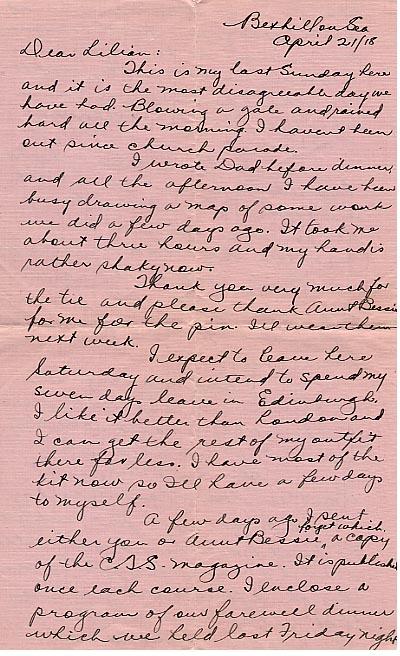 Bexhill on Sea
April 21/18
Dear Lilian:
This is my last Sunday here
and it is the most disagreeable day we
have had. Blowing a gale and rained
hard all the morning. I havent been
out since church parade.
I wrote Dad before dinner,
and all the afternoon I have been
busy drawing a map of some work
we did a few days ago. It took me
about three hours and my hand is
rather shaky now.
Thank you very much for
the tie and please thank Aunt Bessie
for me for the pin. Ill wear them
next week.
I expect to leave here
Saturday and intend to spend my
seven days leave in Edinburgh.
I like it better than London and
I can get the rest of my outfit
there for less. I have most of the
kit now so Ill have a few days
to myself.
A few days ago I sent
either you or Aunt Bessie, forget which, a copy
of the C.B.S. magazine. It is published
once each course. I enclose a
program of our farewell dinner
which we held last Friday night